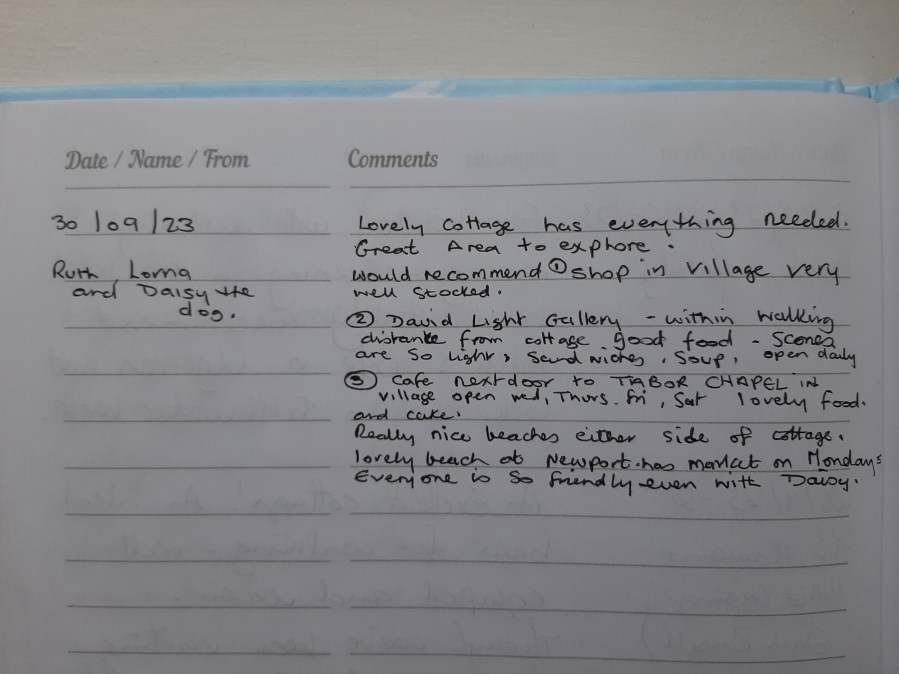 Date / Name / From
Comments
30/09/23
Ruth Lorna
and Daisy the
dog.
Lovely Cottage has everything needed.
Great Area to explore.
Would recommend ① shop in village very
well stocked.
② David Light Gallery - within walking
distance from cottage good food - Scones
are so light, Sandwiches, Soup, open daily
③ Cafe nextdoor to TABOR CHAPEL IN
village open wed, Thurs. fri, Sat lovely food.
and cake.
Really nice beaches either side of cottage.
lovely beach at Newport. has market on Mondays
Everyone is so friendly even with Daisy.